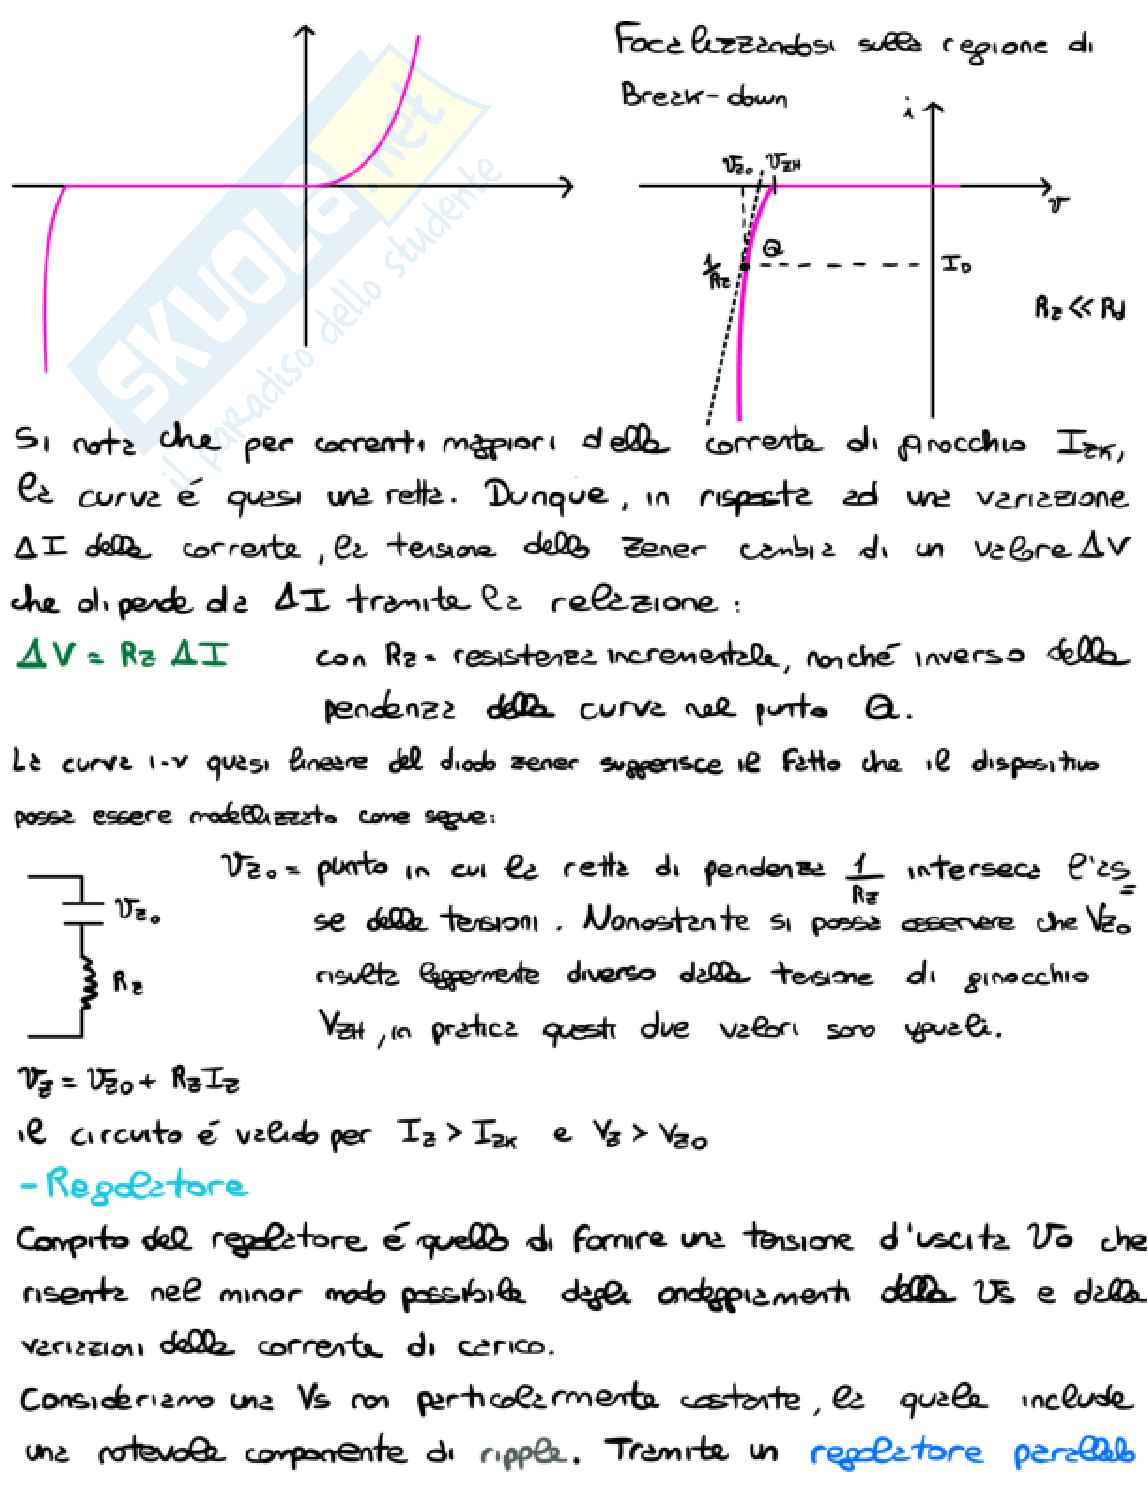 Focalizzandosi sulla regione di
Break-down
i
VZ0 VZH
v
Q
1/RZ
ID
RZ << Rd
SKUOLA.net
il paradiso dello studente
Si nota che per correnti maggiori della corrente di ginocchio IZK,
la curva é quasi una retta. Dunque, in risposta ad una variazione
ΔI della corrente, la tensione dello zener cambia di un valore ΔV
che dipende da ΔI tramite la relazione:
ΔV = RZ ΔI con RZ = resistenza incrementale, nonché inverso della
pendenza della curva nel punto Q.
La curva i-v quasi lineare del diodo zener suggerisce il fatto che il dispositivo
possa essere modellizzato come segue:
VZ0 = punto in cui la retta di pendenza 1/RZ interseca l'as
VZ0
se delle tensioni. Nonostante si possa osservare che VZ0
RZ
risulta leggermente diverso dalla tensione di ginocchio
VZH, in pratica questi due valori sono uguali.
VZ = VZ0 + RZ IZ
il circuito é valido per IZ > IZK e VZ > VZ0
- Regolatore
Compito del regolatore é quello di fornire una tensione d'uscita Vo che
risenta nel minor modo possibile degli ondeggiamenti della Vs e dalle
variazioni della corrente di carico.
Consideriamo una Vs non particolarmente costante, la quale include
una notevole componente di ripple. Tramite un regolatore parallelo